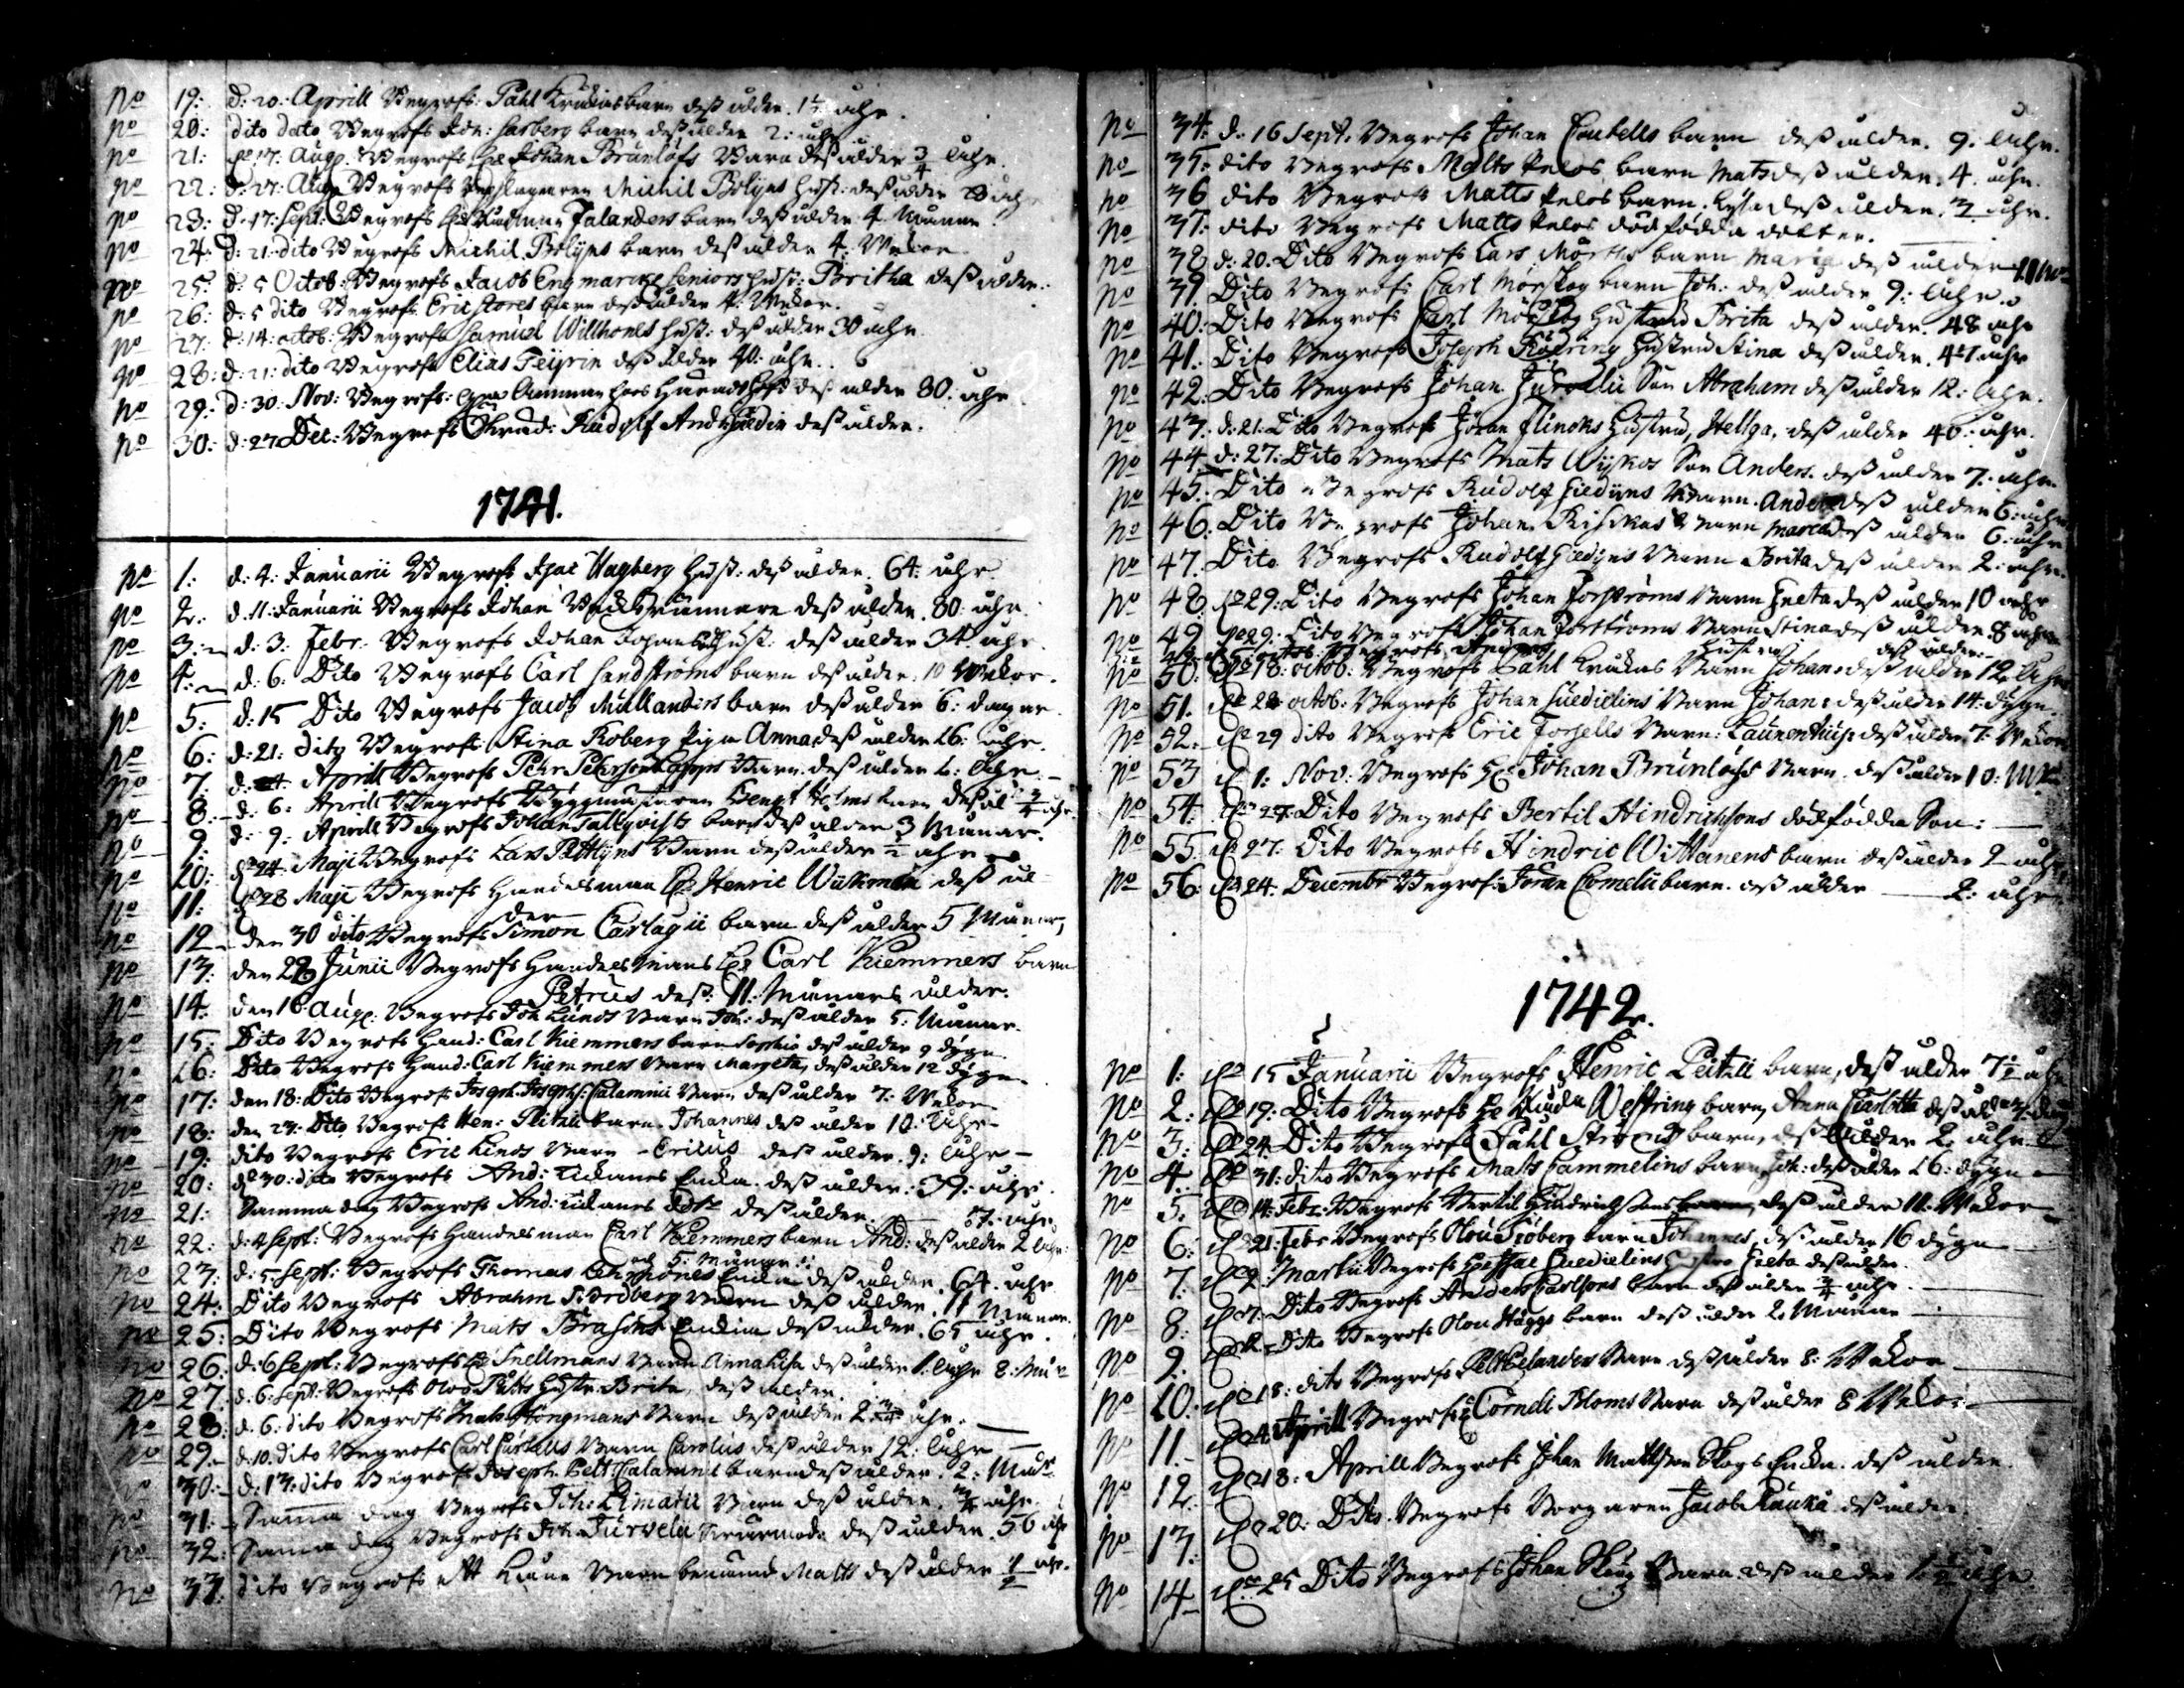 No 19: d: 20: Aprill Begrofs: Påhl Krukas barn deß ålder 1 1/2 åhr.
No 20: dito dato Begrofs Joh: barn deß ålder 2: åhr
No 21: de 17: Augs: Begrofs He Johan Brunlöfs Barn deß ålder 3/4 åhr.
No 22: d: 27: Aug Begrofs Michil Bolijns hust: deß ålder
No 23: d: 17: Sept: Begrofs Jalanders barn deß ålder 4 Månar
No 24: d: 21: dito Begrofs Michil Bolijns barn deß ålder 4: Wekor
No 25: d: 5 Octob: Begrofs Jacob Engmarcks Seniors hust: Britha deß ålder:
No 26: d: 5 dito Begrofs Eric Stores barn deß ålder 4: Wekor.
No 27: d: 14: octob: Begrofs Samuel Willhones hust: deß ålder 30 åhr
No 28: d: 21: dito Begrofs Elias Teijrin deß ålder 40: åhr.
No 29: d: 30: Nov: Begrofs: deß ålder 80: åhr
No 30: d: 27 Dec: Begrofs Rudolf And: deß ålder.
1741.
No 1: d: 4: Januarii Begrofs Isac Hagberg hust: deß ålder. 64: åhr
No 2: d: 11: Januarii Begrofs Johan deß ålder. 80: åhr.
No 3: d: 3: Febr: Begrofs Johan Johans hust: deß ålder 34 åhr
No 4: d: 6: Dito Begrofs Carl Sandströms barn deß ålder. 10 Wekor.
No 5: d: 15 Dito Begrofs Jacob Mullanders barn deß ålder 6: dagar.
No 6: d: 21: dito Begrofs Stina Roberg piga Anna deß ålder 26: åhr.
No 7: d: Aprill Begrofs Pehr Pehrson Lapps Barn deß ålder 2: åhr.
No 8: d: 6: Aprill Begrofs Byggmästaren Bengt Holms barn deß ål 3/4 åhr
No 9: d: 9: Aprill Begrofs Johan Tallqvists barn deß ålder 3 Månar.
No 10: de 24: Maji Begrofs Lars Pattlijns Barn deß ålder 1/2 åhr
No 11: de 28 Maji Begrofs Handelsman He Henric Wickman deß ål
der
No 12 den 30 dito Begrofs Simon Carlagii barn deß ålder 5 Månar,
No 13: den 22 Junii Begrofs Handelsmans He Carl Kiemmers barn
Petrus deß: 11: Månars ålder.
No 14: den 16: Aug: Begrofs Joh Lunds Barn Joh: deß ålder 5: Månar.
No 15: Dito Begrofs Hand: Carl Kiemmers barn Sophia deß ålder 9 dygn.
No 16: Dito Begrofs Hand: Carl Kiemmers Barn Margeta, deß ålder 12 dygn.
No 17: den 18: Dito Begrofs Joseph Josephs: Calamnii Barn deß ålder 7: Wekor
No 18: den 23: Dito Begrofs Hen: Peitzii barn Johannes deß ålder 10: åhr
No 19: dito Begrofs Eric Linds Barn Ericus deß ålder. 9: åhr
No 20: de 30: dito Begrofs And: Ukanes Enka. deß ålder: 39: åhr.
No 21: Samma dag Begrofs And: Ukanes deß ålder. 87: åhr
No 22: d: 4 Sept: Begrofs Handelsman Carl Kiemmers barn And: deß ålder 2 åhr:
och 5. Månar:
No 23: d: 5 Sept: Begrofs Thomas Enka deß ålder. 64. åhr
No 24: Dito Begrofs Abrahm Nordberg Barn deß ålder. 11 Månar.
No 25: Dito Begrofs Mats Brasons Enka deß ålder. 65 åhr.
No 26: d: 6 Sept: Begrofs He Snellmans Barn Anna Lisa deß ålder 1. åhr 8: Mån
No 27: d: 6: Sept: Begrofs Oloo hustr: Brita, deß ålder.
No 28: d: 6: dito Begrofs Mats Höngmans Barn deß ålder 2 3/4 åhr.
No 29: d: 10. dito Begrofs Carl Barn Carolus deß ålder 12: åhr
No 30: d: 13: dito Begrofs Joseph Pett: Calamnii barn deß ålder. 2: Mån
No 31: Samma dag Begrofs Joh: Limatii Barn deß ålder. 3/4 åhr.
No 32: Samma dag Begrofs Joh: Jurvela deß ålder. 56 åhr
No 33: dito Begrofs ett Barn benämnd Matts deß ålder 1/2 åhr.
No 34: d: 16 Sept: Begrofs Johan barn deß ålder. 9: åhr.
No 35: dito Begrofs Matts Pelos barn Mats deß ålder. 4. åhr.
No 36 dito Begrofs Matts Pelos barn: Lysa deß ålder. 3/4 åhr.
No 37: dito Begrofs Matts Pelos dödfödda dotter.
No 38 d: 20. Dito Begrofs Lars Mörths barn Maria deß ålder
No 39. Dito Begrofs Carl Mörskog barn Joh: deß ålder 9: åhr.
No 40: Dito Begrofs Carl Mörskog Hustru Brita deß ålder. 48 åhr
No 41: Dito Begrofs Joseph Hustru Stina deß ålder. 41 åhr
No 42: Dito Begrofs Johan Son Abrahem deß ålder 12: åhr.
No 43: d: 21: Dito Begrofs Jöran Flincks Hustru, Hellga, deß ålder 40: åhr.
No 44 d: 27: Dito Begrofs Mats Wijkos Son Anders. deß ålder 7: åhr
No 45: Dito Begrofs Rudolf Barn. Anders deß ålder 6: åhr
No 46: Dito Begrofs Johan Riskas Barn Maria deß ålder 6: åhr
No 47: Dito Begrofs Rudolf Barn Brita deß ålder 2: åhr.
No 48 de 29: Dito Begrofs Johan Forströms Barn Greta deß ålder 10 åhr
No 49 de 29: Dito Begrofs Johan Forströms Barn Stina deß ålder 8 åhr
Hustru deß ålder:
No 50: de 18: octob: Begrofs Påhl Krukas Barn Johan: deß ålder 12 åhr
No 51. de 28 octob: Begrofs Johan Barn Johan: deß ålder 14: dygn
No 52: de 29 dito Begrofs Eric Forsells Barn: Laurentius: deß ålder 7: Wekor
No 53 de 1: Nov: Begrofs He Johan Brunlöfs Barn deß ålder 10: W
No 54: de 27: Dito Begrofs Bertil Hindrichsons dödfödda Son:
No 55 de 27: Dito Begrofs Hindric Wittanens barn deß ålder 2 åhr
No 56: de 24: December Begrofs Jöran Cornelii barn. deß ålder 2: åhr
1742.
No 1: de 15 Januarii Begrofs Henric Peitzii barn, deß ålder 7 1/2 åhr
No 2: de 19: Dito Begrofs He Westring barn, Anna Charlotta deß ålder
No 3: de 24: Dito Begrofs Påhl barn, deß ålder 2 åhr
No 4: de 31: dito Begrofs Mats Gammelins barn, Joh: deß ålder 26: dygn
No 5: de 14: Febr: Begrofs Bertil Hindrichsons deß ålder 11: Wekor
No 6: de 21: Febr Begrofs Olou Siöberg barn Johannes, deß ålder 16 dygn
No 7: de 2: Martii Begrofs He Isac Hustru Greta deß ålder.
No 8: de 7: Dito Begrofs Anders Carlsons barn deß ålder 3/4 åhr.
No 9: de Dito Begrofs Olou Häggs barn deß ålder 2 Månar
No 10: de 18: dito Begrofs Pett Helander Barn deß ålder 8: Wekor
No 11: de 4 Aprill Begrofs Cornelii Bloms Barn deß ålder 8 Wekor
No 12: de 18: Aprill Begrofs Johan Mattson Skogs Enka. deß ålder
No 13: de 20: Dito. Begrofs Borgaren Jacob Rauka deß ålder
No 14 de 25 Dito Begrofs Johan Skoug Barn deß ålder 1 1/2 åhr